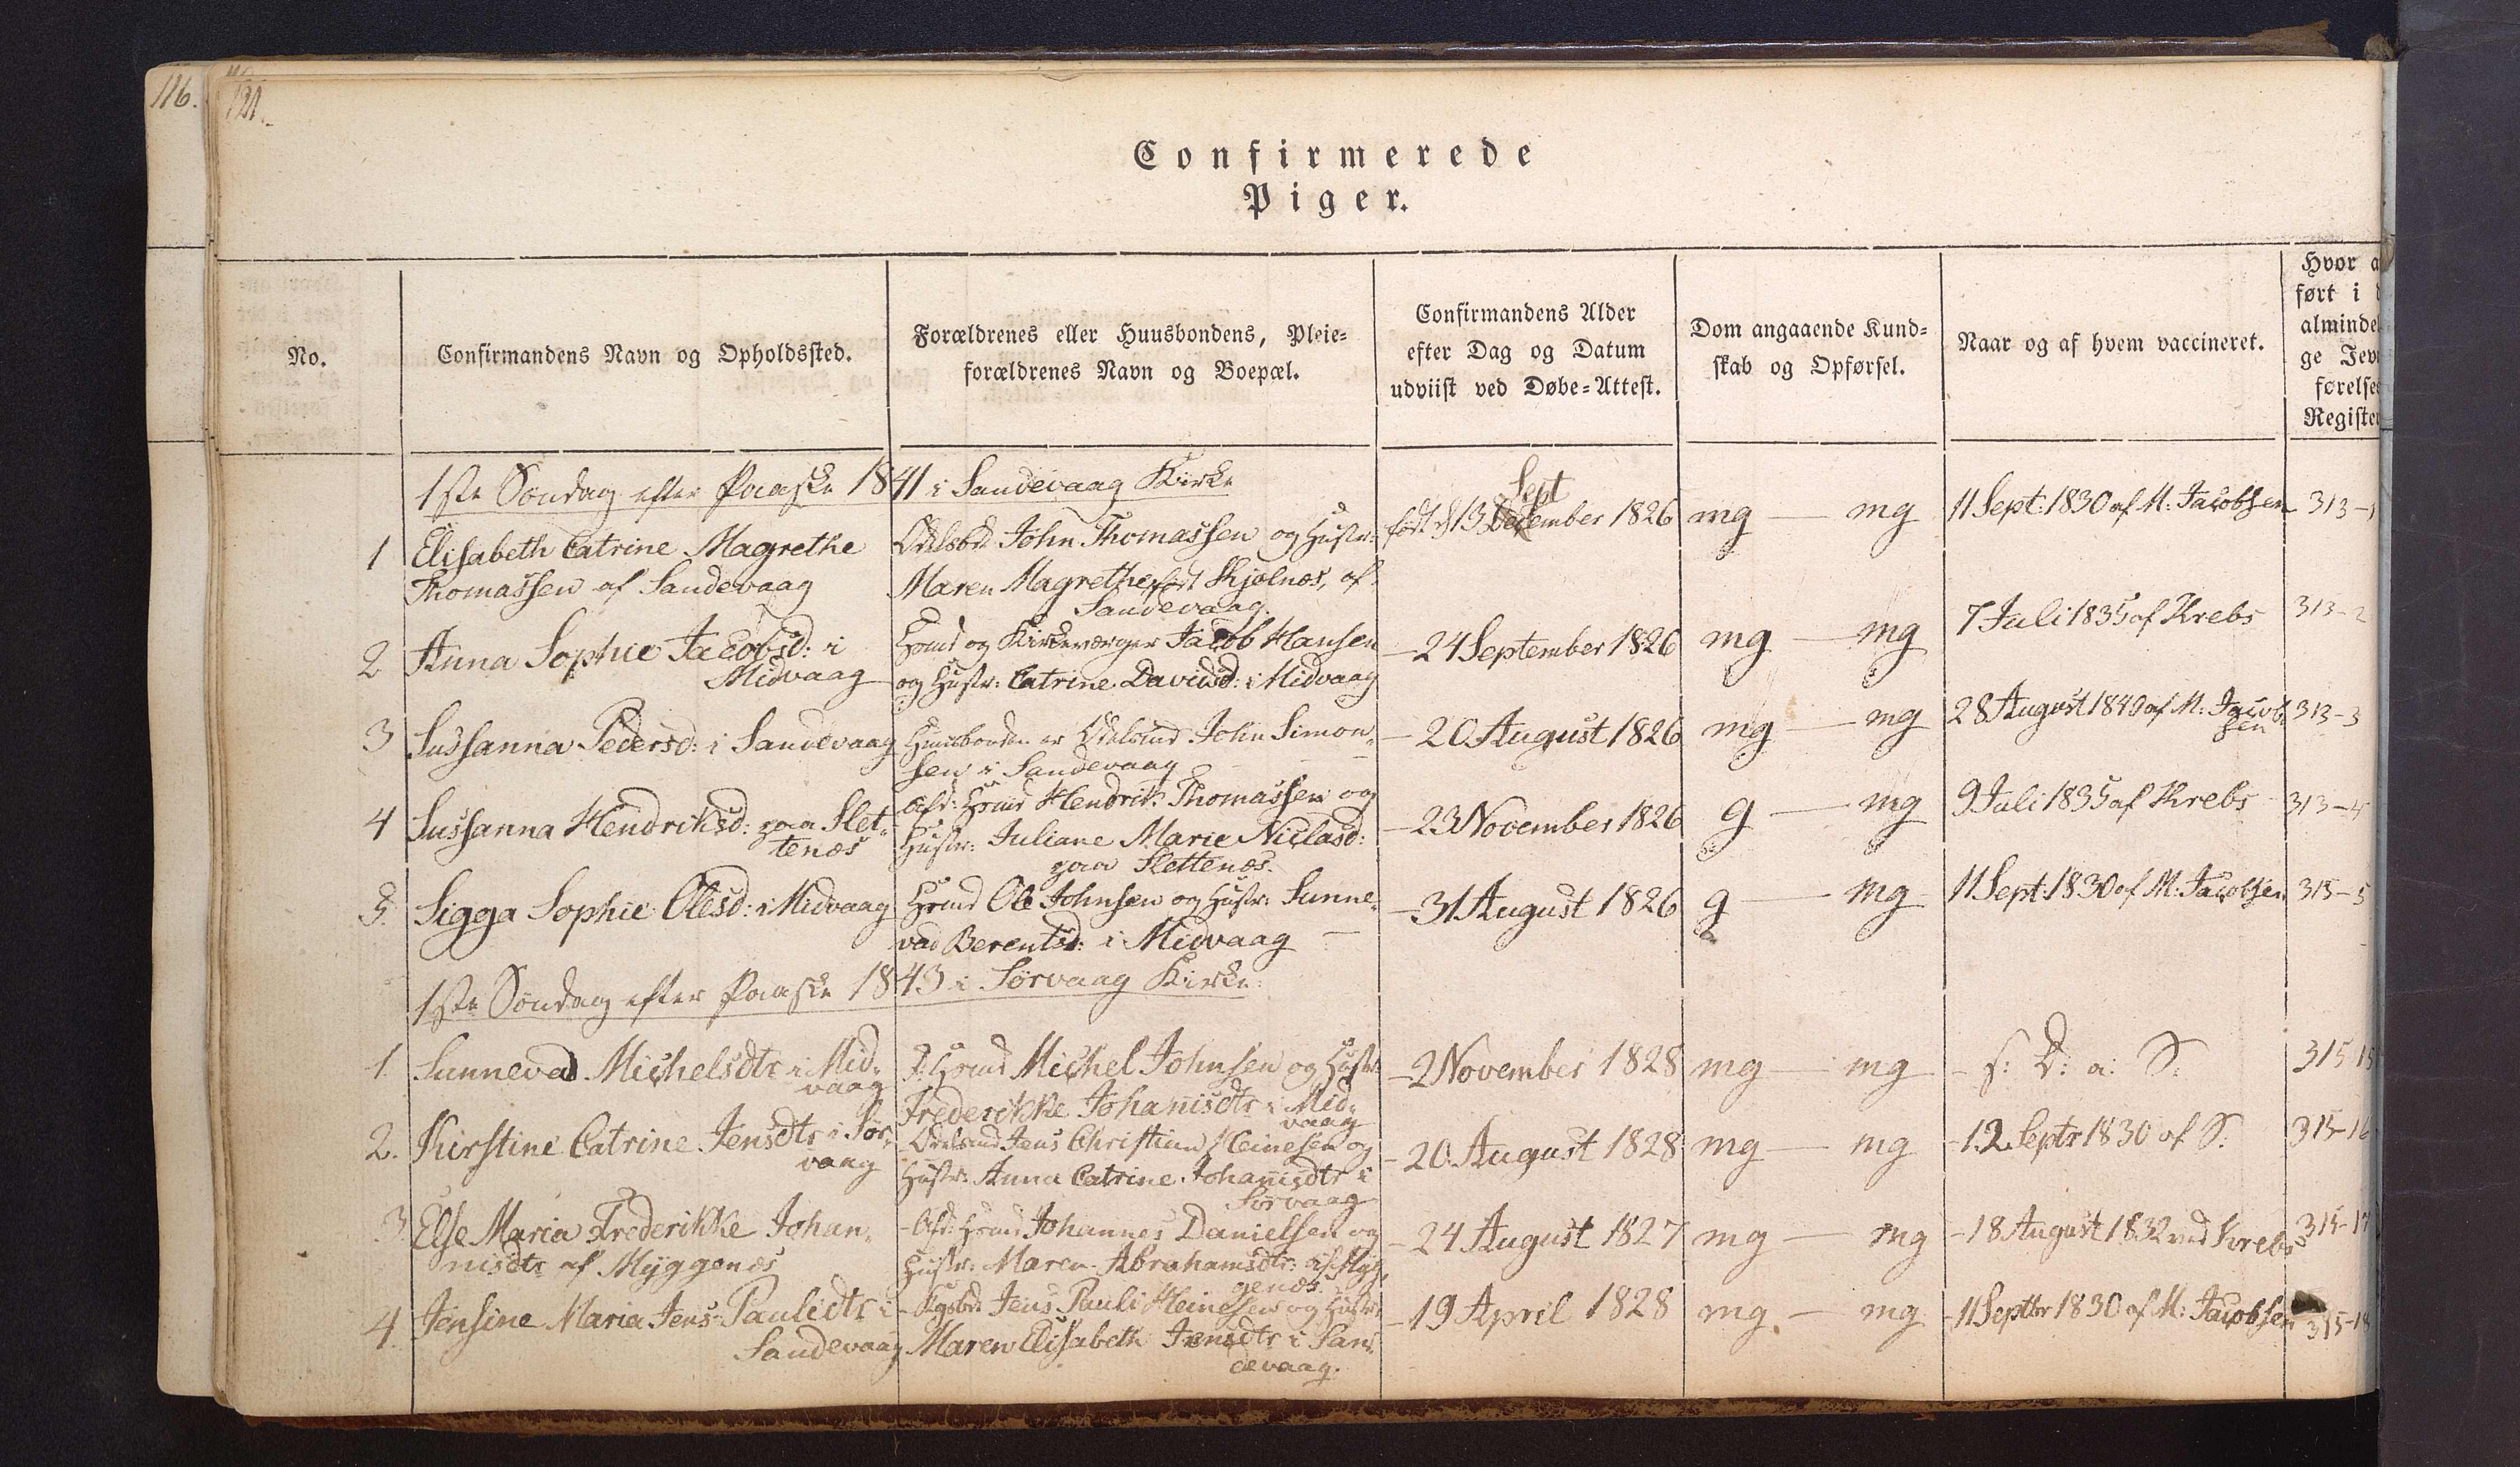 116.
Confirmerede
Piger.
No.
Confirmandens Navn og Opholdssted.
Forældrenes eller Huusbondens, Pleie-
forældrenes Navn og Boepæl.
Confirmandens Alder
efter Dag og Datum
udviist ved Døbe-Attest.
Dom angaaende Kund-
skab og Opførsel.
Naar og af hvem vaccineret.
Hvor a
ført i d
almindel
ge Jevn
førelses
Register
1ste Søndag efter Paaske 1841 i Sandevaag Kirke
1
Elisabeth Catrine Magrethe
Thomassen af Sandevaag
Odelsbd: John Thomassen og Hustr:
Maren Magrethe født Kjølnes, af
Sandevaag.
Sept
født d 13 December 1826
mg — mg
11 Sept: 1830 af M: Jacobsen
313-1
2
Anna Sophie Jacobsd: i
Midvaag
Hmd og Kirkeværger Jacob Hansen
og Hustr: Catrine Davidsd: i Midvaag
- 24 September 1826
mg — mg
7 Juli 1835 af Krebs
313-2
3
Sussanna Pedersd: i Sandevaag
Huusbonden er Odelsmd John Simon-
sen i Sandevaag
- 20 August 1826
mg — mg
28 August 1840 af M: Jacob
sen
313-3
4
Sussanna Hendriksd: paa Slet-
tenæs
Afd: Hmd Hendrik Thomassen og
Hustr: Juliane Marie Niclasd:
paa Slettenæs.
- 23 November 1826
g — mg
9 Juli 1835 af Krebs
313-4
5.
Sigga Sophie Olesd: i Midvaag
Hmd Ole Johnsen og Hustr: Sunne-
vad Berentsd: i Midvaag —
- 31 August 1826
g — mg
11 Sept: 1830 af M: Jacobsen
313-5
1ste Søndag efter Paaske 1843 i Sørvaag Kirke.
1.
Sunnevad Michelsdtr i Mid-
vaag
Hmd Michel Johnsen og Hustr:
Frederikke Johanisdtr i Mid-
vaag
- 2 November 1828
mg — mg
- s: D: a: S.
315 15
2.
Kirstine Catrine Jensdtr i Sør-
vaag
Odelsmd Jens Christian Heinesen og
Hustr: Anna Catrine Johanisdtr i
Sørvaag
- 20 August 1828
mg — mg
- 12 Septr 1830 af S.
315-16
3
Else Maria Frederikke Johan-
nisdtr af Myggenæs
- Afd: Hmd Johannes Danielsen og
Hustr: Maren Abrahamsdtr: af Myg-
genæs
- 24 August 1827
mg — mg
- 18 August 1832 ved Krebs
315-17
4.
Jensine Maria Jens-Paulidtr i
Sandevaag
- Kgsbd: Jens Pauli Heinesen og Hustr:
Maren Elisabeth Jensdtr i San-
devaag.
- 19 April 1828
mg. — mg
- 11 Septbr 1830 af M: Jacobsen
315-18